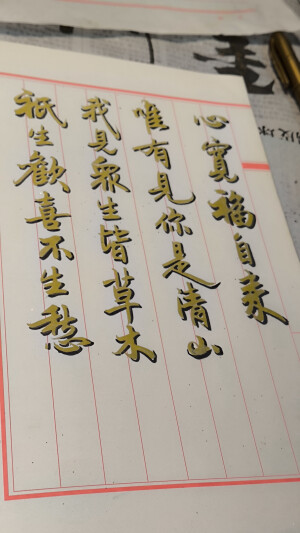 心寬福自来
唯有見你是清山
我見衆生皆草木
祇生歡喜不生愁